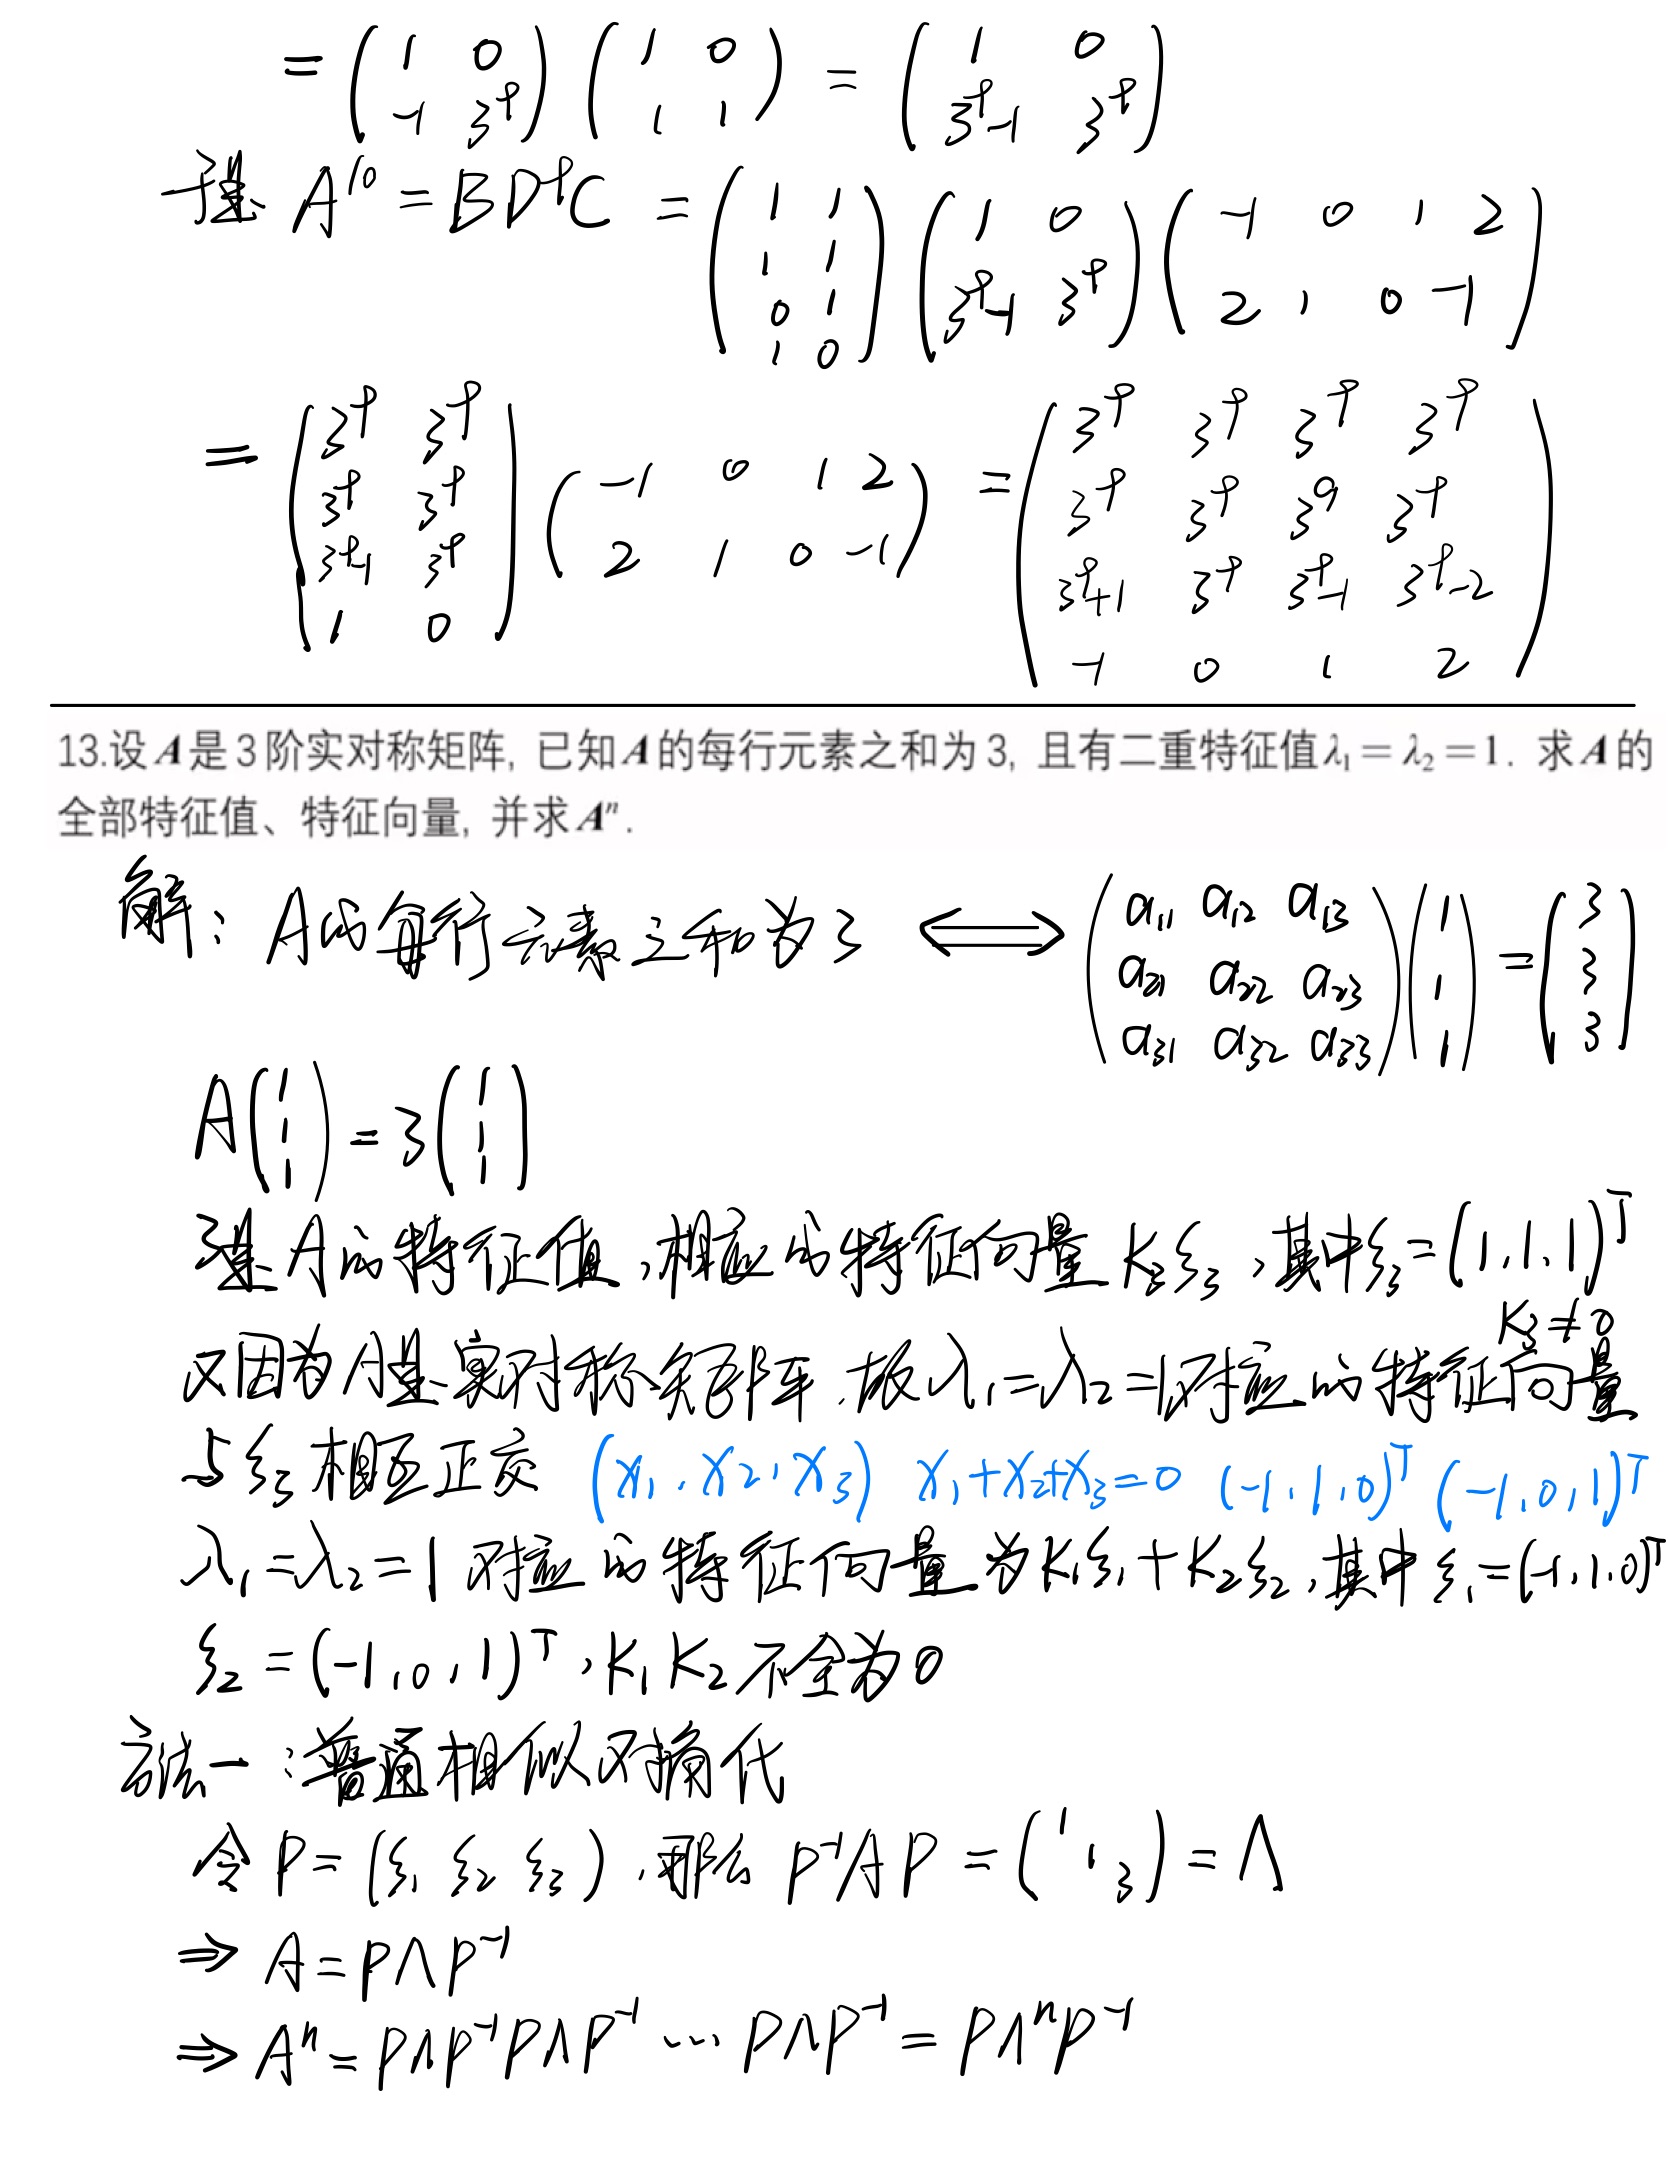 = (1 0; -1 3^9) (1 0; 1 1) = (1 0; 3^9-1 3^9)
于是 A^10 = BD^9C = (1 1; 1 1; 0 1; 1 0) (1 0; 3^9-1 3^9) (-1 0 1 2; 2 1 0 -1)
= (3^9 3^9; 3^9 3^9; 3^9-1 3^9; 1 0) (-1 0 1 2; 2 1 0 -1) = (3^9 3^9 3^9 3^9; 3^9 3^9 3^9 3^9; 3^9+1 3^9 3^9-1 3^9-2; -1 0 1 2)
13.设 A 是 3 阶实对称矩阵, 已知 A 的每行元素之和为 3, 且有二重特征值 λ₁ = λ₂ = 1. 求 A 的
全部特征值、特征向量, 并求 Aⁿ.
解: A的每行元素之和为3 ⟺ (a₁₁ a₁₂ a₁₃; a₂₁ a₂₂ a₂₃; a₃₁ a₃₂ a₃₃) (1; 1; 1) = (3; 3; 3)
A(1; 1; 1) = 3(1; 1; 1)
3是A的特征值,相应的特征向量 K₃ξ₃,其中ξ₃=(1,1,1)^T
K₃≠0
又因为A是实对称矩阵.故λ₁=λ₂=1对应的特征向量
与ξ₃相互正交 (x₁,x₂,x₃) x₁+x₂+x₃=0 (-1,1,0)^T (-1,0,1)^T
λ₁=λ₂=1 对应的特征向量为K₁ξ₁+K₂ξ₂,其中ξ₁=(-1,1,0)^T
ξ₂=(-1,0,1)^T,K₁K₂不全为0
方法一:普通相似对角化
令 P=(ξ₁ ξ₂ ξ₃),那么 P⁻¹AP = (1 1 3) = Λ
⇒ A=PΛP⁻¹
⇒ Aⁿ=PΛP⁻¹PΛP⁻¹ ⋯ PΛP⁻¹ = PΛⁿP⁻¹